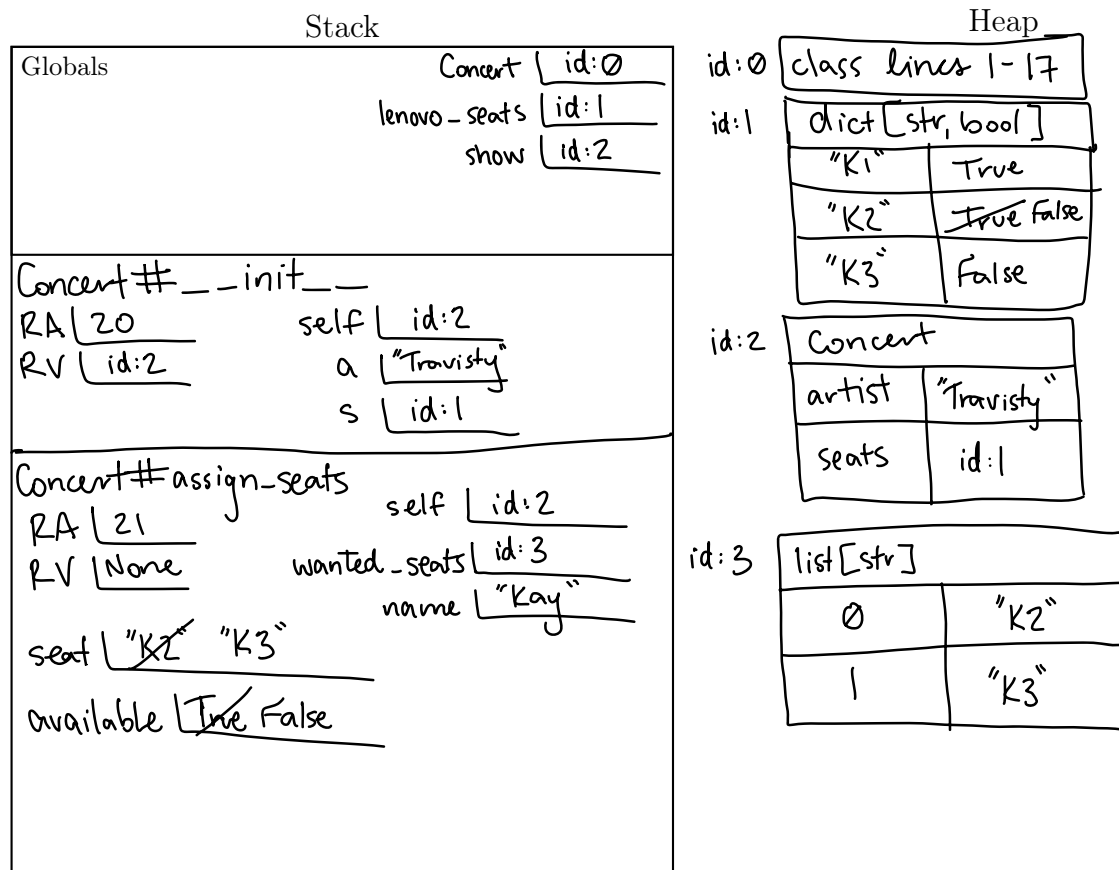 Stack
Heap
Globals
Concert id:0
lenovo_seats id:1
show id:2
Concert#__init__
RA 20
RV id:2
self id:2
a "Travisty"
s id:1
Concert#assign_seats
RA 21
RV None
self id:2
wanted_seats id:3
name "Kay"
seat "K2" "K3"
available True False
id:0 class lines 1-17
id:1 dict[str, bool]
"K1" True
"K2" True False
"K3" False
id:2 Concert
artist "Travisty"
seats id:1
id:3 list[str]
0 "K2"
1 "K3"